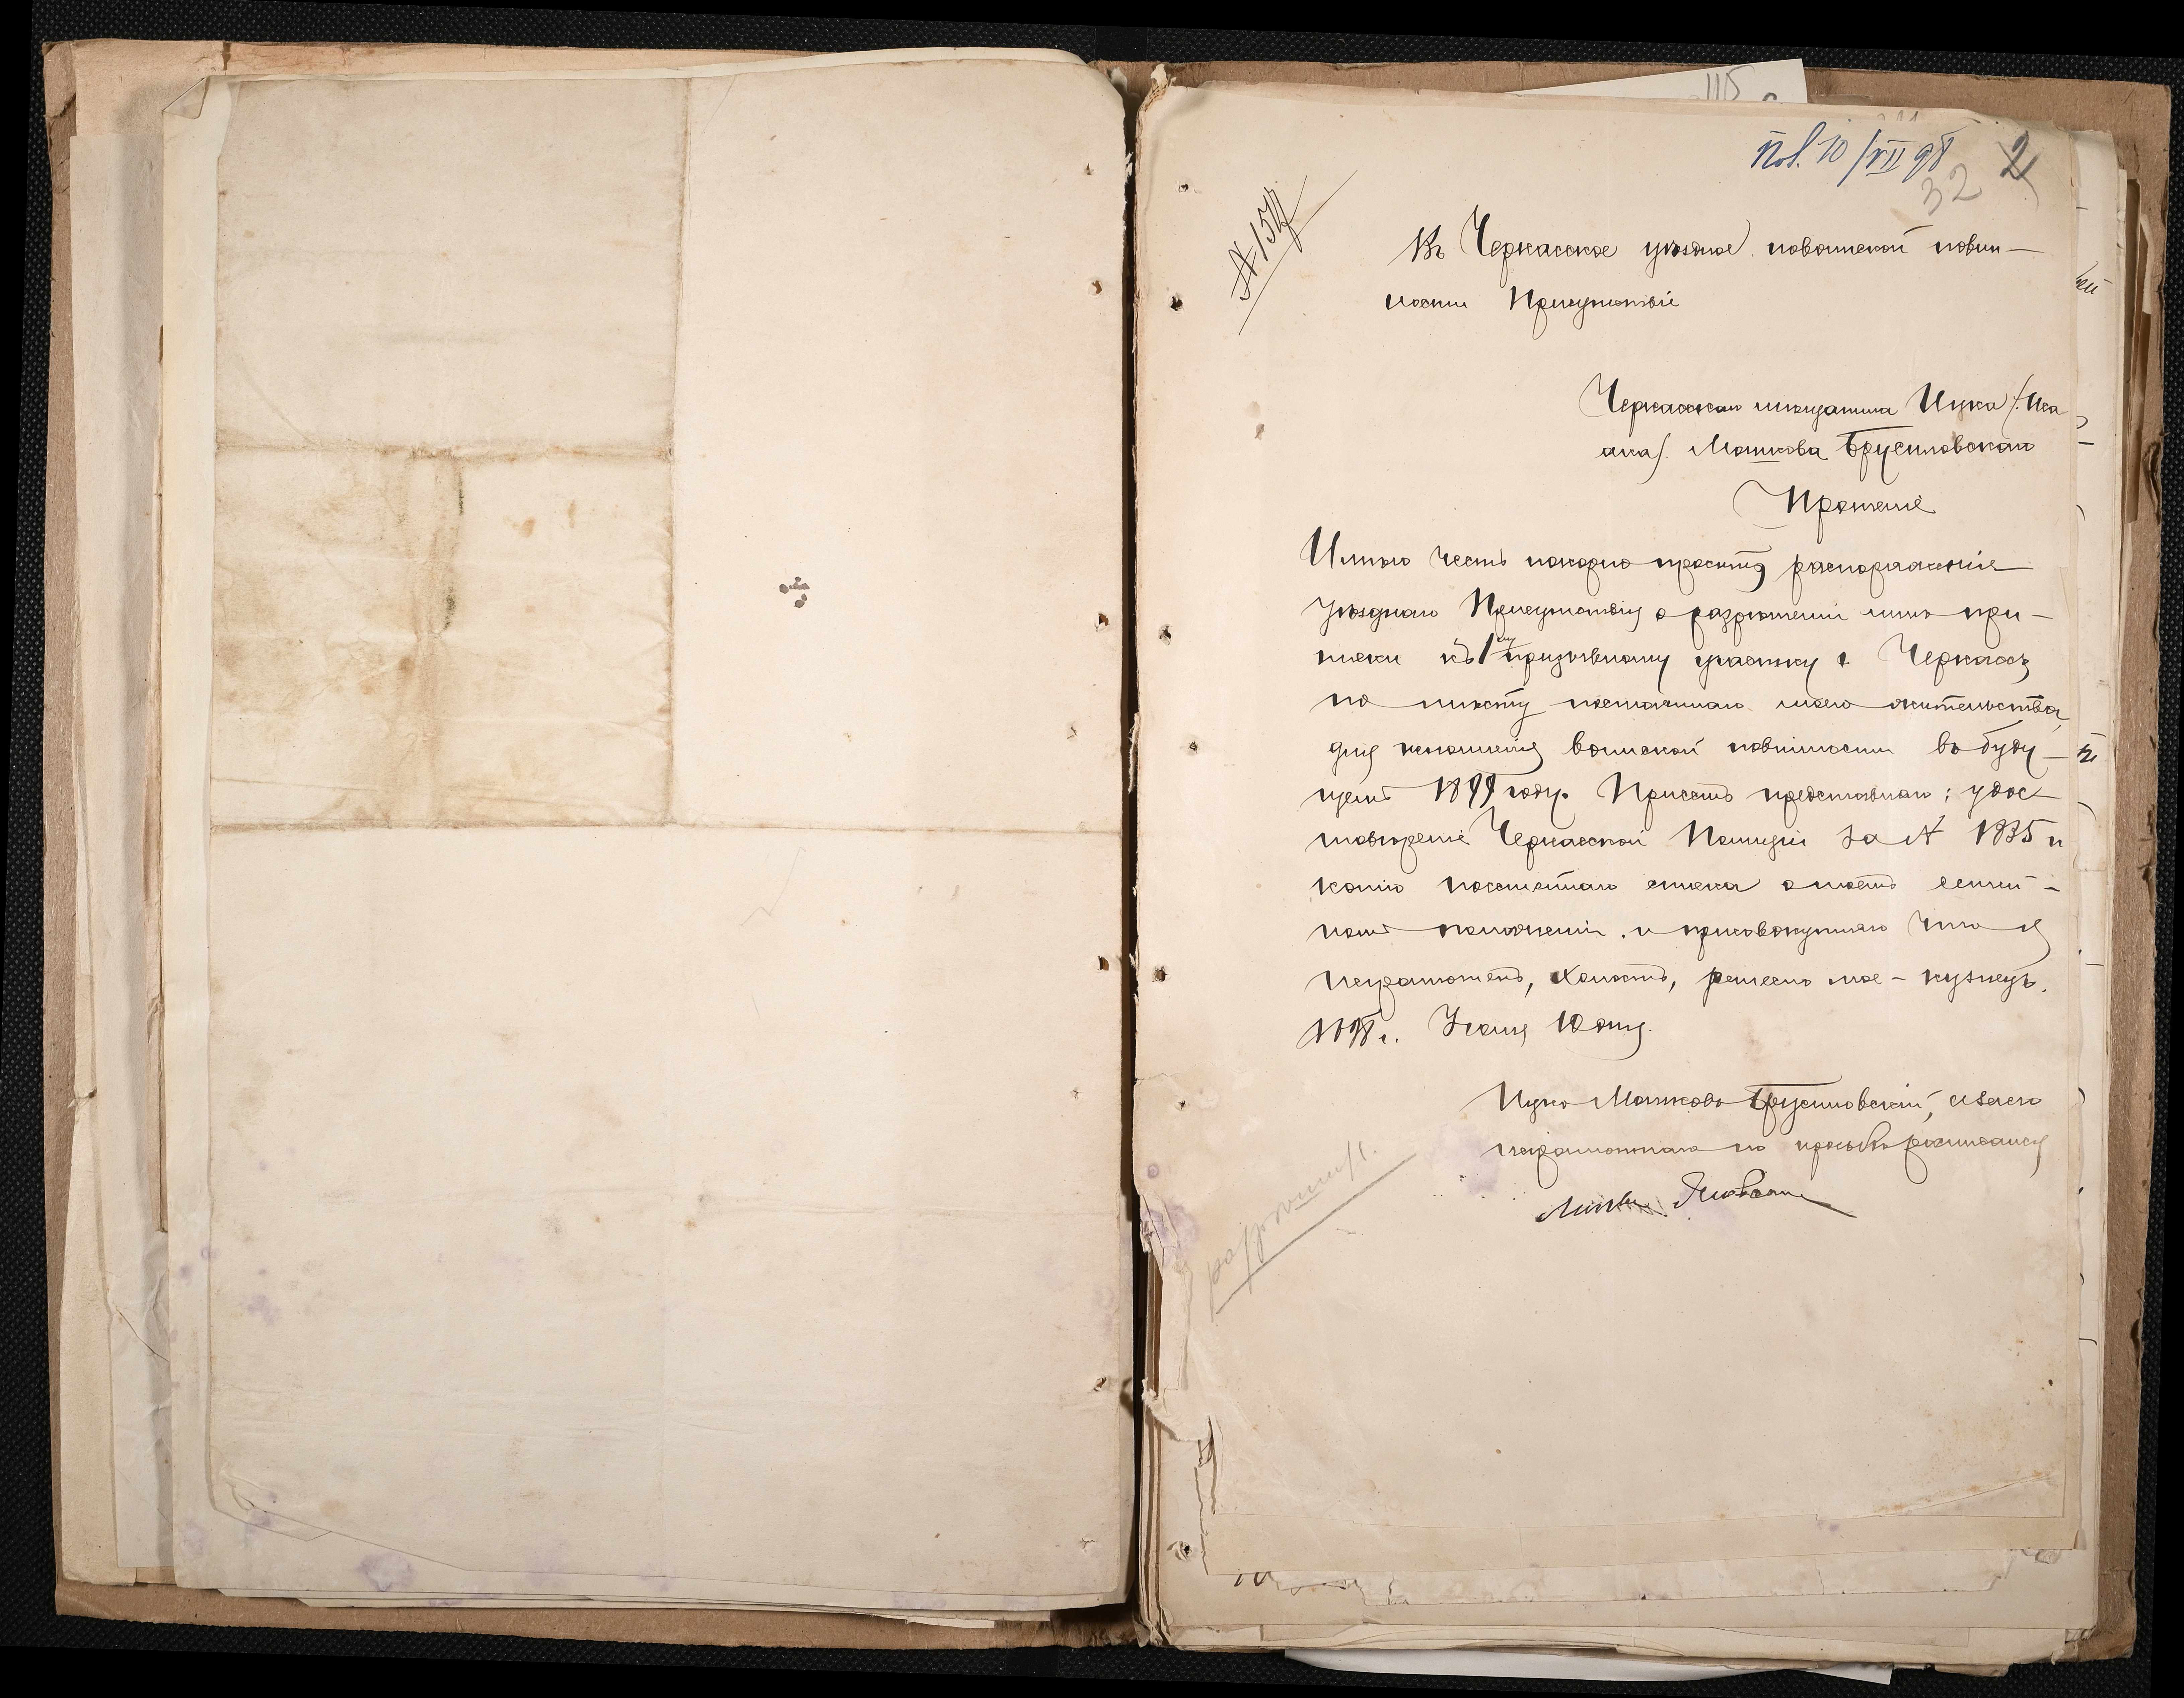 Пол. 10/VII 98
32 2
№ 1517
Въ Черкасское уѣздное по воинской повин-
ности Присутствіе
Черкасскаго мѣщанина Ицка /: Иса-
ака/. Мошкова Брусиловскаго
Прошеніе
Имѣю честь покорно просить распоряженіе
Уѣзднаго Присутствія о разрѣшеніи мнѣ при-
писки къ 1му призывному участку г. Черкассъ
по мѣсту постояннаго моего жительства,
для исполненія воинской повинности въ буду-
щемъ 1899 году. Присемъ представляю: удос-
товѣреніе Черкасской Полиціи за № 1835 и
копію посемейнаго списка о моемъ семей-
номъ положеніи. и присовокупляю что я
неграмотенъ, холостъ, ремесло мое - кузнецъ.
1898 г. Іюля 10 дня.
Ицко Мошковъ Брусиловскій, а за него
неграмотнаго по просьбѣ росписался
разрѣшить